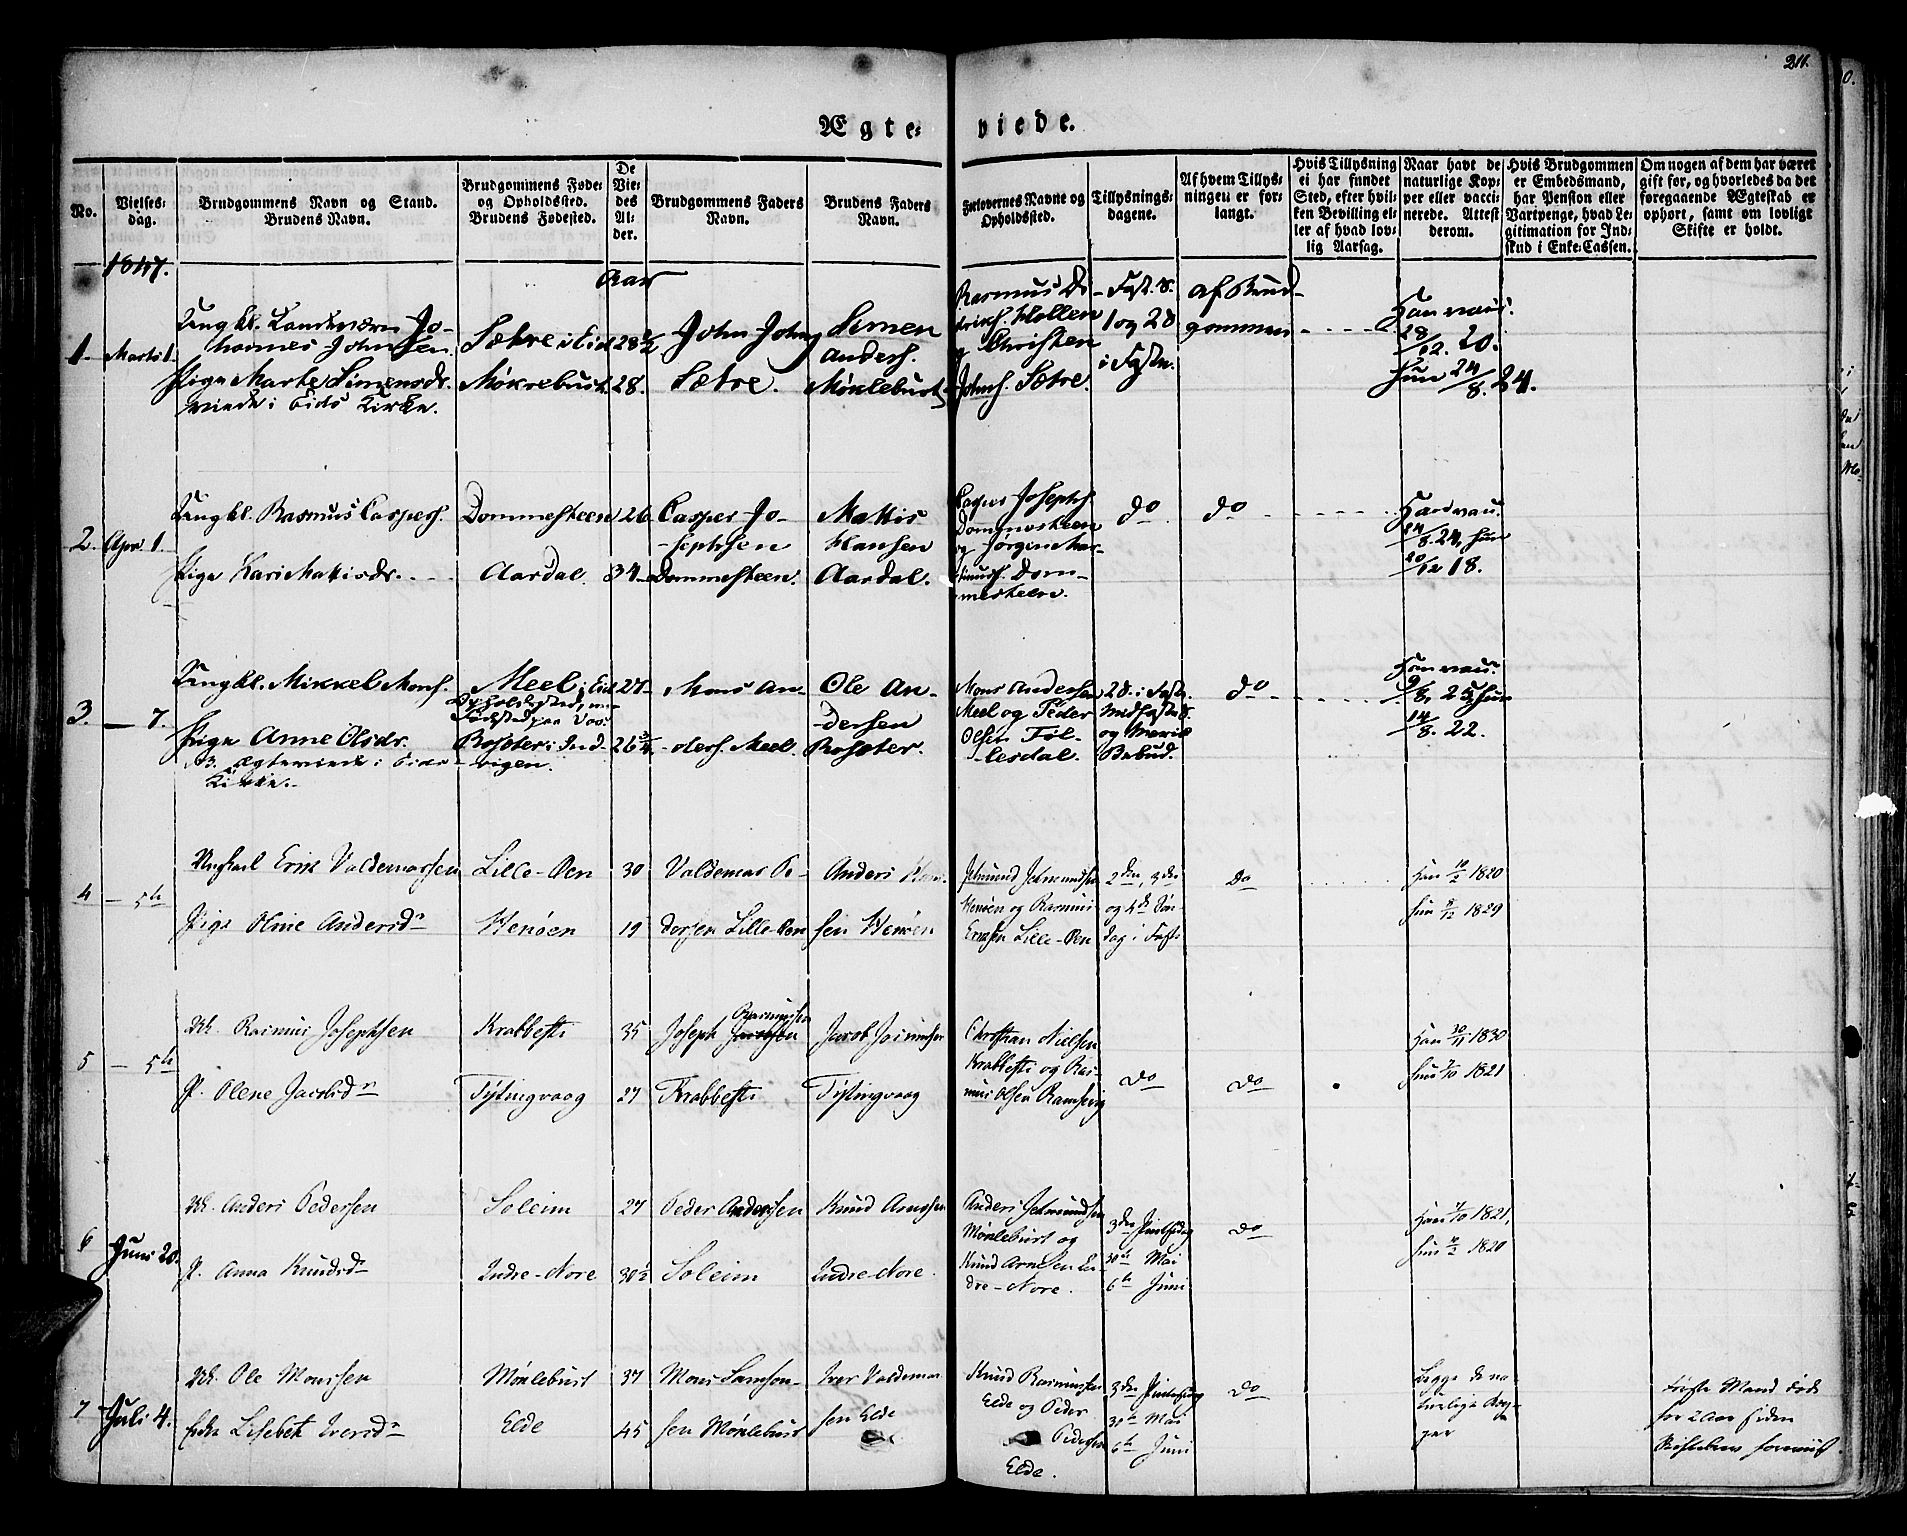 211.
Ægte-
viede.
No.
Vielses-
dag.
Brudgommens Navn og Stand.
Brudens Navn.
Brudgommens Føde-
og Opholdssted.
Brudens Fødested.
De
Vie-
des
Al-
der.
Brudgommens Faders
Navn.
Brudens Faders
Navn.
Forlovernes Navne og
Opholdssted.
Tillysnings-
dagene.
Af hvem Tillys-
ningen er for-
langt.
Hvis Tillysning
ei har fundet
Sted, efter hvil-
ken Bevilling el-
ler af hvad lov-
lig Aarsag.
Naar havt de
naturlige Kop-
per eller vacci-
nerede. Attest
derom.
Hvis Brudgommen
er Embedsmand,
har Pension eller
Vartpenge, hvad Le-
gitimation for Ind-
skud i Enke-Cassen.
Om nogen af dem har været
gift før, og hvorledes da det
foregaaende Ægtestad er
ophørt, samt om lovligt
Skifte er holdt.
1847.
Aar
1
Marts 1.
Ungkl. Landeværn Jo-
hannes Johnsen.
Pige Marte Simensdr.
viede i Eids Kirke.
Sætre i Eid
Møklebust.
28 1/2
28.
John Johns
Sætre.
Simen
Anders.
Møklebust
Rasmus Di-
driks. Hollen
og Christen
Johns. Sætre.
Fast. S.
1 og 2 S
i Faste.
af Brud-
gommen
Han vacc.
28/12. 20.
Hun 24/8. 24.
2.
Apr 1.
Ungkl. Rasmus Caspers.
Pige Kari Mattisdr.
Dommesteen
Aardal.
26
34
Casper Jo-
sephsen
Dommesteen.
Mattis
Hansen
Aardal.
Casper Josephs.
Dommesteen
og Jørgen Ras-
muss. Dom-
mesteen.
do
do
Han vau.
14/8. 24, Hun
20/12 18.
3.
— 7.
Ungkl. Mikkel Mons.
Pige Anne Olsdr.
Ægteviede i Eids
Kirke.
Meel i Eid
Opholdssted,
Fødested paa Vos.
Rosæter i Ind-
vigen.
27
26 3/4
Mons An-
ders. Meel
Ole An-
dersen
Rosæter.
Mons Andersen
Meel og Peder
Olsen Føl-
lesdal.
2S. i Faste.
Midfaste S.
og Mariæ
Bebud.
do
Han vau.
9/8. 25, Hun
14/8. 22.
4
— 5te
Ungkarl Erik Valdemarsen
Pige Oline Andersdr
Lille-Øen
Henøen
30
19
Valdemar Pe-
dersen Lille-Øen
Anders Han-
sen Henøen
Jetmund Jetmundsen
Henøen og Rasmus
Ernsen Lille-Øen
2den, 3die
og 4de Søn-
dag i Faste
do
Han 10/2 1820
Hun 8/12 1829
5
— 5te
Uk. Rasmus Josephsen
P. Olene Jacobsdr
Krabbesti
Tystingvaag
35
27
Joseph Rasmussen
Krabbesti
Jacob Joensen
Tystingvaag
Christian Nielsen
Krabbesti og Ras-
mus Olsen Ramsevig
do
do
Han 30/11 1830
Hun 7/10 1821
6
Juni 20.
Uk. Anders Pedersen
P. Anna Knudsdr
Soleim
Indre-Nore
27
30½
Peder Andersen
Soleim
Knud Arnesen
Indre-Nore.
Anders Jetmundsen
Møklebust og
Knud Arnesen In-
dre-Nore.
3den Pintsedag
30te Mai
6te Juni
do
Han 7/10 1821,
Hun 10/2 1820
7
Juli 4.
Uk. Ole Monssen
Enke Lisebet Iversdr
Møklebust
Elde
37
45
Mons Samson-
sen Møklebust
Iver Valdemar-
sen Elde
Knud Rasmussen
Elde og Peder
Pedersen
Elde.
3den Pintsedag
30te Mai
6te Juni
do
Begge de na-
turlige Kop-
per
Første Mand døde
for 2 Aar siden
Skiftebrev foreviist.